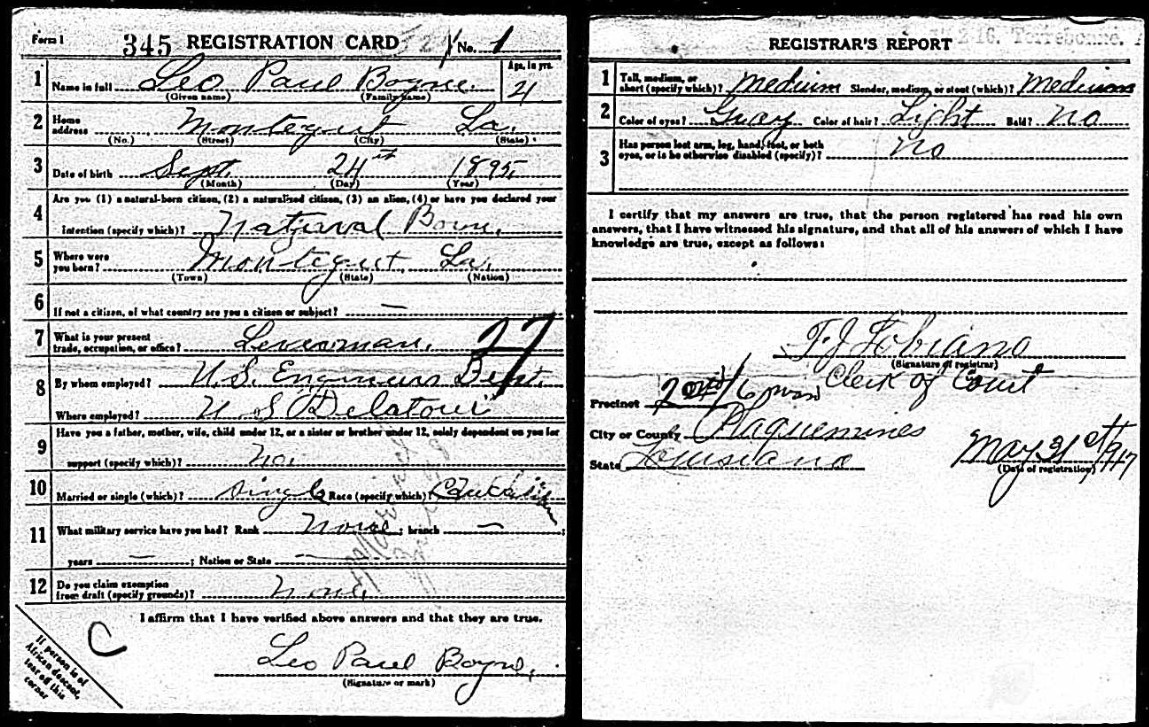 Form 1 345 REGISTRATION CARD No. 1
1 Name in full Leo Paul Boyne. Age, in yrs.
(Given name) (Family name) 21
2 Home address Montegut La.
(No.) (Street) (City) (State)
3 Date of birth Sept. 24th 1895
(Month) (Day) (Year)
4 Are you (1) a natural-born citizen, (2) a naturalized citizen, (3) an alien, (4) or have you declared your
intention (specify which)? Natural Born.
5 Where were you born? Montegut La.
(Town) (State) (Nation)
6 If not a citizen, of what country are you a citizen or subject? —
7 What is your present trade, occupation, or office? Leverman. 27
8 By whom employed? U.S. Engineers Dept.
Where employed? U S "Delatour"
9 Have you a father, mother, wife, child under 12, or a sister or brother under 12, solely dependent on you for
support (specify which)? No.
10 Married or single (which)? Single Race (specify which)? Caucasian
11 What military service have you had? Rank None ; branch — ;
years — ; Nation or State —
12 Do you claim exemption from draft (specify grounds)? None
I affirm that I have verified above answers and that they are true.
C
Leo Paul Boyne.
(Signature or mark)
If person is of
African descent,
tear off this
corner
REGISTRAR'S REPORT
Terrebonne.
1 Tall, medium, or short (specify which)? Medium Slender, medium, or stout (which)? Medium
2 Color of eyes? Gray Color of hair? Light Bald? No
3 Has person lost arm, leg, hand, foot, or both
eyes, or is he otherwise disabled (specify)? No
I certify that my answers are true, that the person registered has read his own
answers, that I have witnessed his signature, and that all of his answers of which I have
knowledge are true, except as follows:
(Signature of registrar)
Clerk of Court
Precinct
City or County Plaquemines
State Louisiana May 31st 1917
(Date of registration)